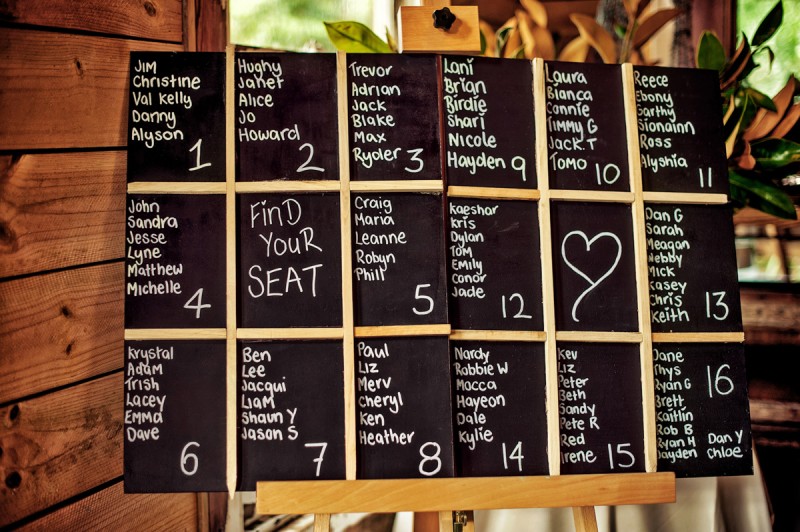 Jim
Christine
Val Kelly
Danny
Alyson
1
Hughy
Janet
Alice
Jo
Howard
2
Trevor
Adrian
Jack
Blake
Max
Ryder 3
Lani
Brian
Birdie
Shari
Nicole
Hayden 9
Laura
Bianca
Connie
Timmy G
Jack.T
Tomo 10
Reece
Ebony
Garthy
Sionainn
Ross
Alyshia
11
John
Sandra
Jesse
Lyne
Matthew
Michelle
4
FinD
YouR
SEAT
Craig
Maria
Leanne
Robyn
Phill
5
Kaeshar
Kris
Dylan
Tom
Emily
Conor
Jade 12
Dan G
Sarah
Meagan
Webby
Mick
Kasey
Chris
Keith 13
Krystal
Adam
Trish
Lacey
Emma
Dave
6
Ben
Lee
Jacqui
Liam
Shaun Y
Jason S
7
Paul
Liz
Merv
Cheryl
Ken
Heather
8
Nardy
Robbie W
Macca
Hayeon
Dale
Kylie
14
Kev
Liz
Peter
Beth
Sandy
Pete R
Red
Irene 15
Jane
Rhys
Ryan G
Brett
Kaitlin
Rob B
Ryan H
Jayden
16
Dan Y
Chloe